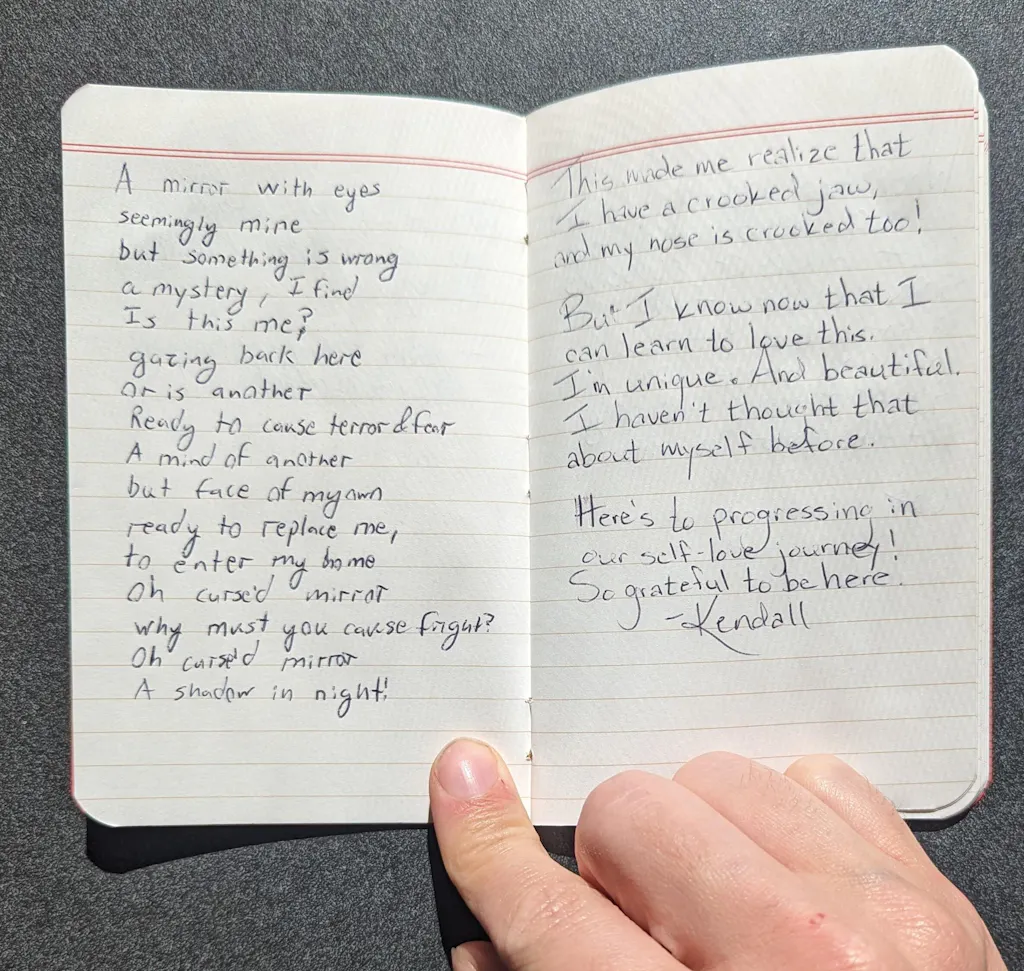 A mirror with eyes
seemingly mine
but something is wrong
a mystery, I find
Is this me?
gazing back here
or is another
Ready to cause terror & fear
A mind of another
but face of my own
ready to replace me,
to enter my home
Oh curse'd mirror
why must you cause fright?
Oh curse'd mirror
A shadow in night!
This made me realize that
I have a crooked jaw,
and my nose is crooked too!
But I know now that I
can learn to love this.
I'm unique. And beautiful.
I haven't thought that
about myself before.
Here's to progressing in
our self-love journey!
So grateful to be here.
-Kendall